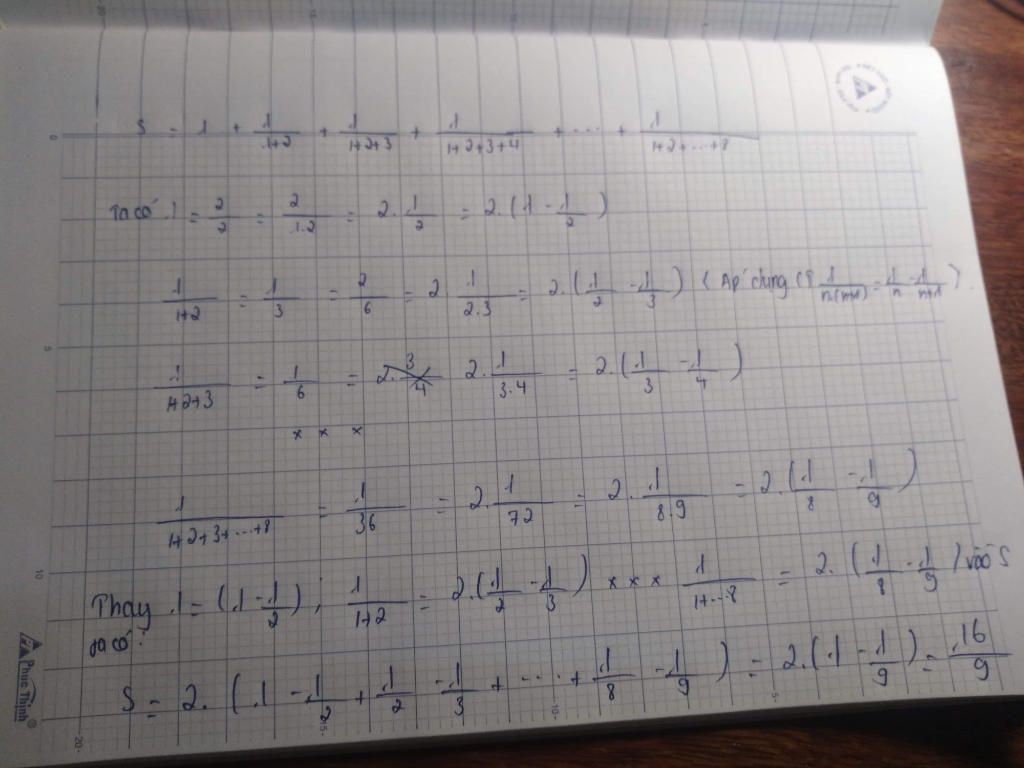 S = 1 + 1/(1+2) + 1/(1+2+3) + 1/(1+2+3+4) + ... + 1/(1+2+...+8)
Ta có 1 = 2/2 = 2/1.2 = 2. 1/2 = 2.(1 - 1/2)
1/(1+2) = 1/3 = 2/6 = 2 1/2.3 = 2.(1/2 - 1/3) (Áp dụng CT 1/n.(n+1) = 1/n - 1/n+1)
1/(1+2+3) = 1/6 = 2. 1/3.4 = 2.(1/3 - 1/4)
x x x
1/(1+2+3+...+8) = 1/36 = 2. 1/72 = 2. 1/8.9 = 2.(1/8 - 1/9)
Thay 1 = (1 - 1/2), 1/(1+2) = 2.(1/2 - 1/3) x x x 1/(1+...8) = 2.(1/8 - 1/9) vào S
ta có:
S = 2.(1 - 1/2 + 1/2 - 1/3 + ... + 1/8 - 1/9) = 2.(1 - 1/9) = 16/9
Phúc Thịnh®
0
5
10
-20-
-10-